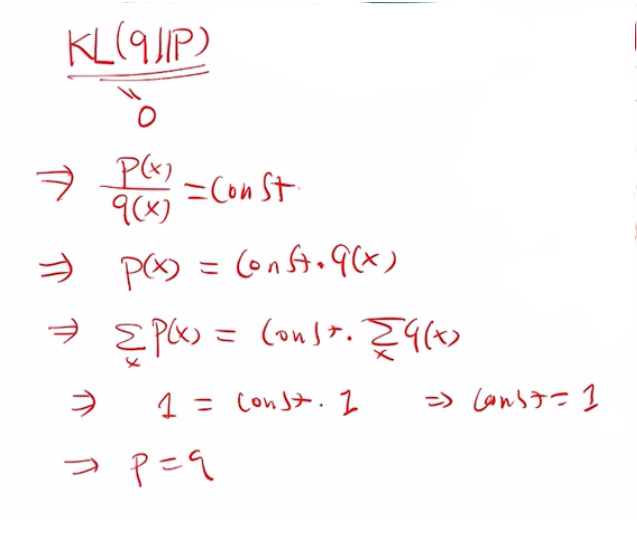 KL(q||P)
"
0
⇒ P(x)/q(x) = Const.
⇒ p(x) = Const. q(x)
⇒ Σ_x P(x) = Const. Σ_x q(x)
⇒ 1 = Const. 1 ⇒ Const = 1
⇒ P = q